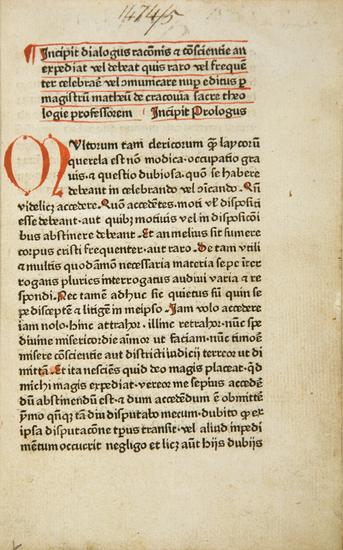 1474/5
Incipit dialogus racōnis & cōscientie an
expediat vel debeat quis raro vel frequē
ter celebrare vel cōmunicare nup editus p
magistrū matheū de cracouia sacre theo
logie professorem Incipit Prologus
Multorum tam clericorum ꝗ̃ laycorū
querela est nō modica occupatio gra
uis & questio dubiosa quō se habere
debeant in celebrando vel cōicando Qñ
videlicȝ accedere Quō accedētes moti vel dispositi
esse debeant aut quibȝ motiuis vel in disposicōi
bus abstinere debeant Et an melius sit sumere
corpus cristi frequenter aut raro De tam vtili
& multis quodāmō necessaria materia sepe īter
rogans pluries interrogatus audiui varia & re
spondi Nec tamē adhuc sic quietus sū quin se
pe disceptē & litigē in meipso Jam volo accedere
iam nolo hinc attrahor illinc retrahor nūc spe
diuine misericordie aīmor ut faciam nūc timōe
misere cōscientie aut districti iudicij terreor ut di
mittā Et ita nesciēs quid deo magis placeat ꝙd
michi magis expediat vereor me sepius accedē
dū abstinendū est & dum accedendum ē obmittē
tam diu disputato mecum dubito
ipsa disputacōne tp̄us transit vel aliud inpedi
mētum occurrit negligo et licȝ aūt hijs dubijs